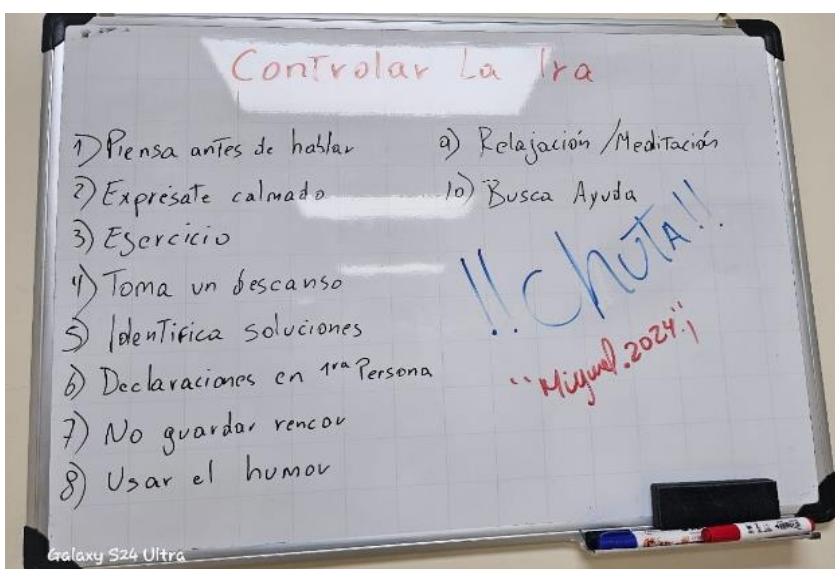 Controlar La Ira
1) Piensa antes de hablar
2) Expresate calmado
3) Esercicio
4) Toma un descanso
5) Identifica soluciones
6) Declaraciones en 1ra Persona
7) No guardar rencor
8) Usar el humor
9) Relajación/Meditación
10) Busca Ayuda
!!ChuTA!!
"Miguel.2024"
Galaxy S24 Ultra